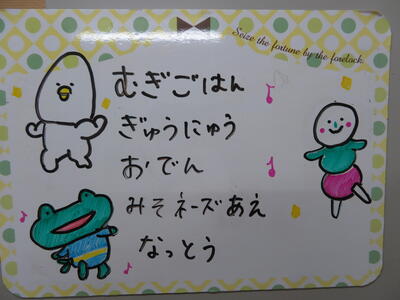 Seize the fortune by the forelock.
むぎごはん
ぎゅうにゅう
おでん
みそネーズあえ
なっとう